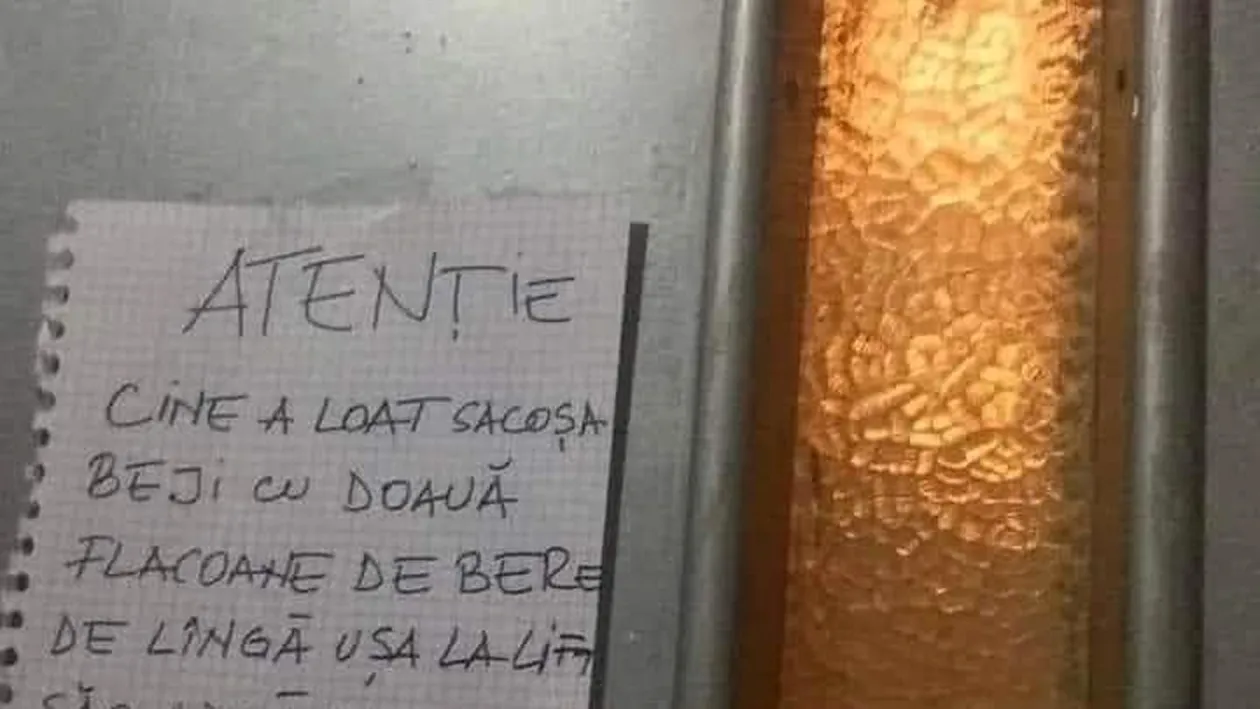 ATENȚIE
CINE A LOAT SACOȘA
BEJI CU DOAUĂ
FLACOANE DE BERE
DE LÎNGĂ UȘA LA LIFT